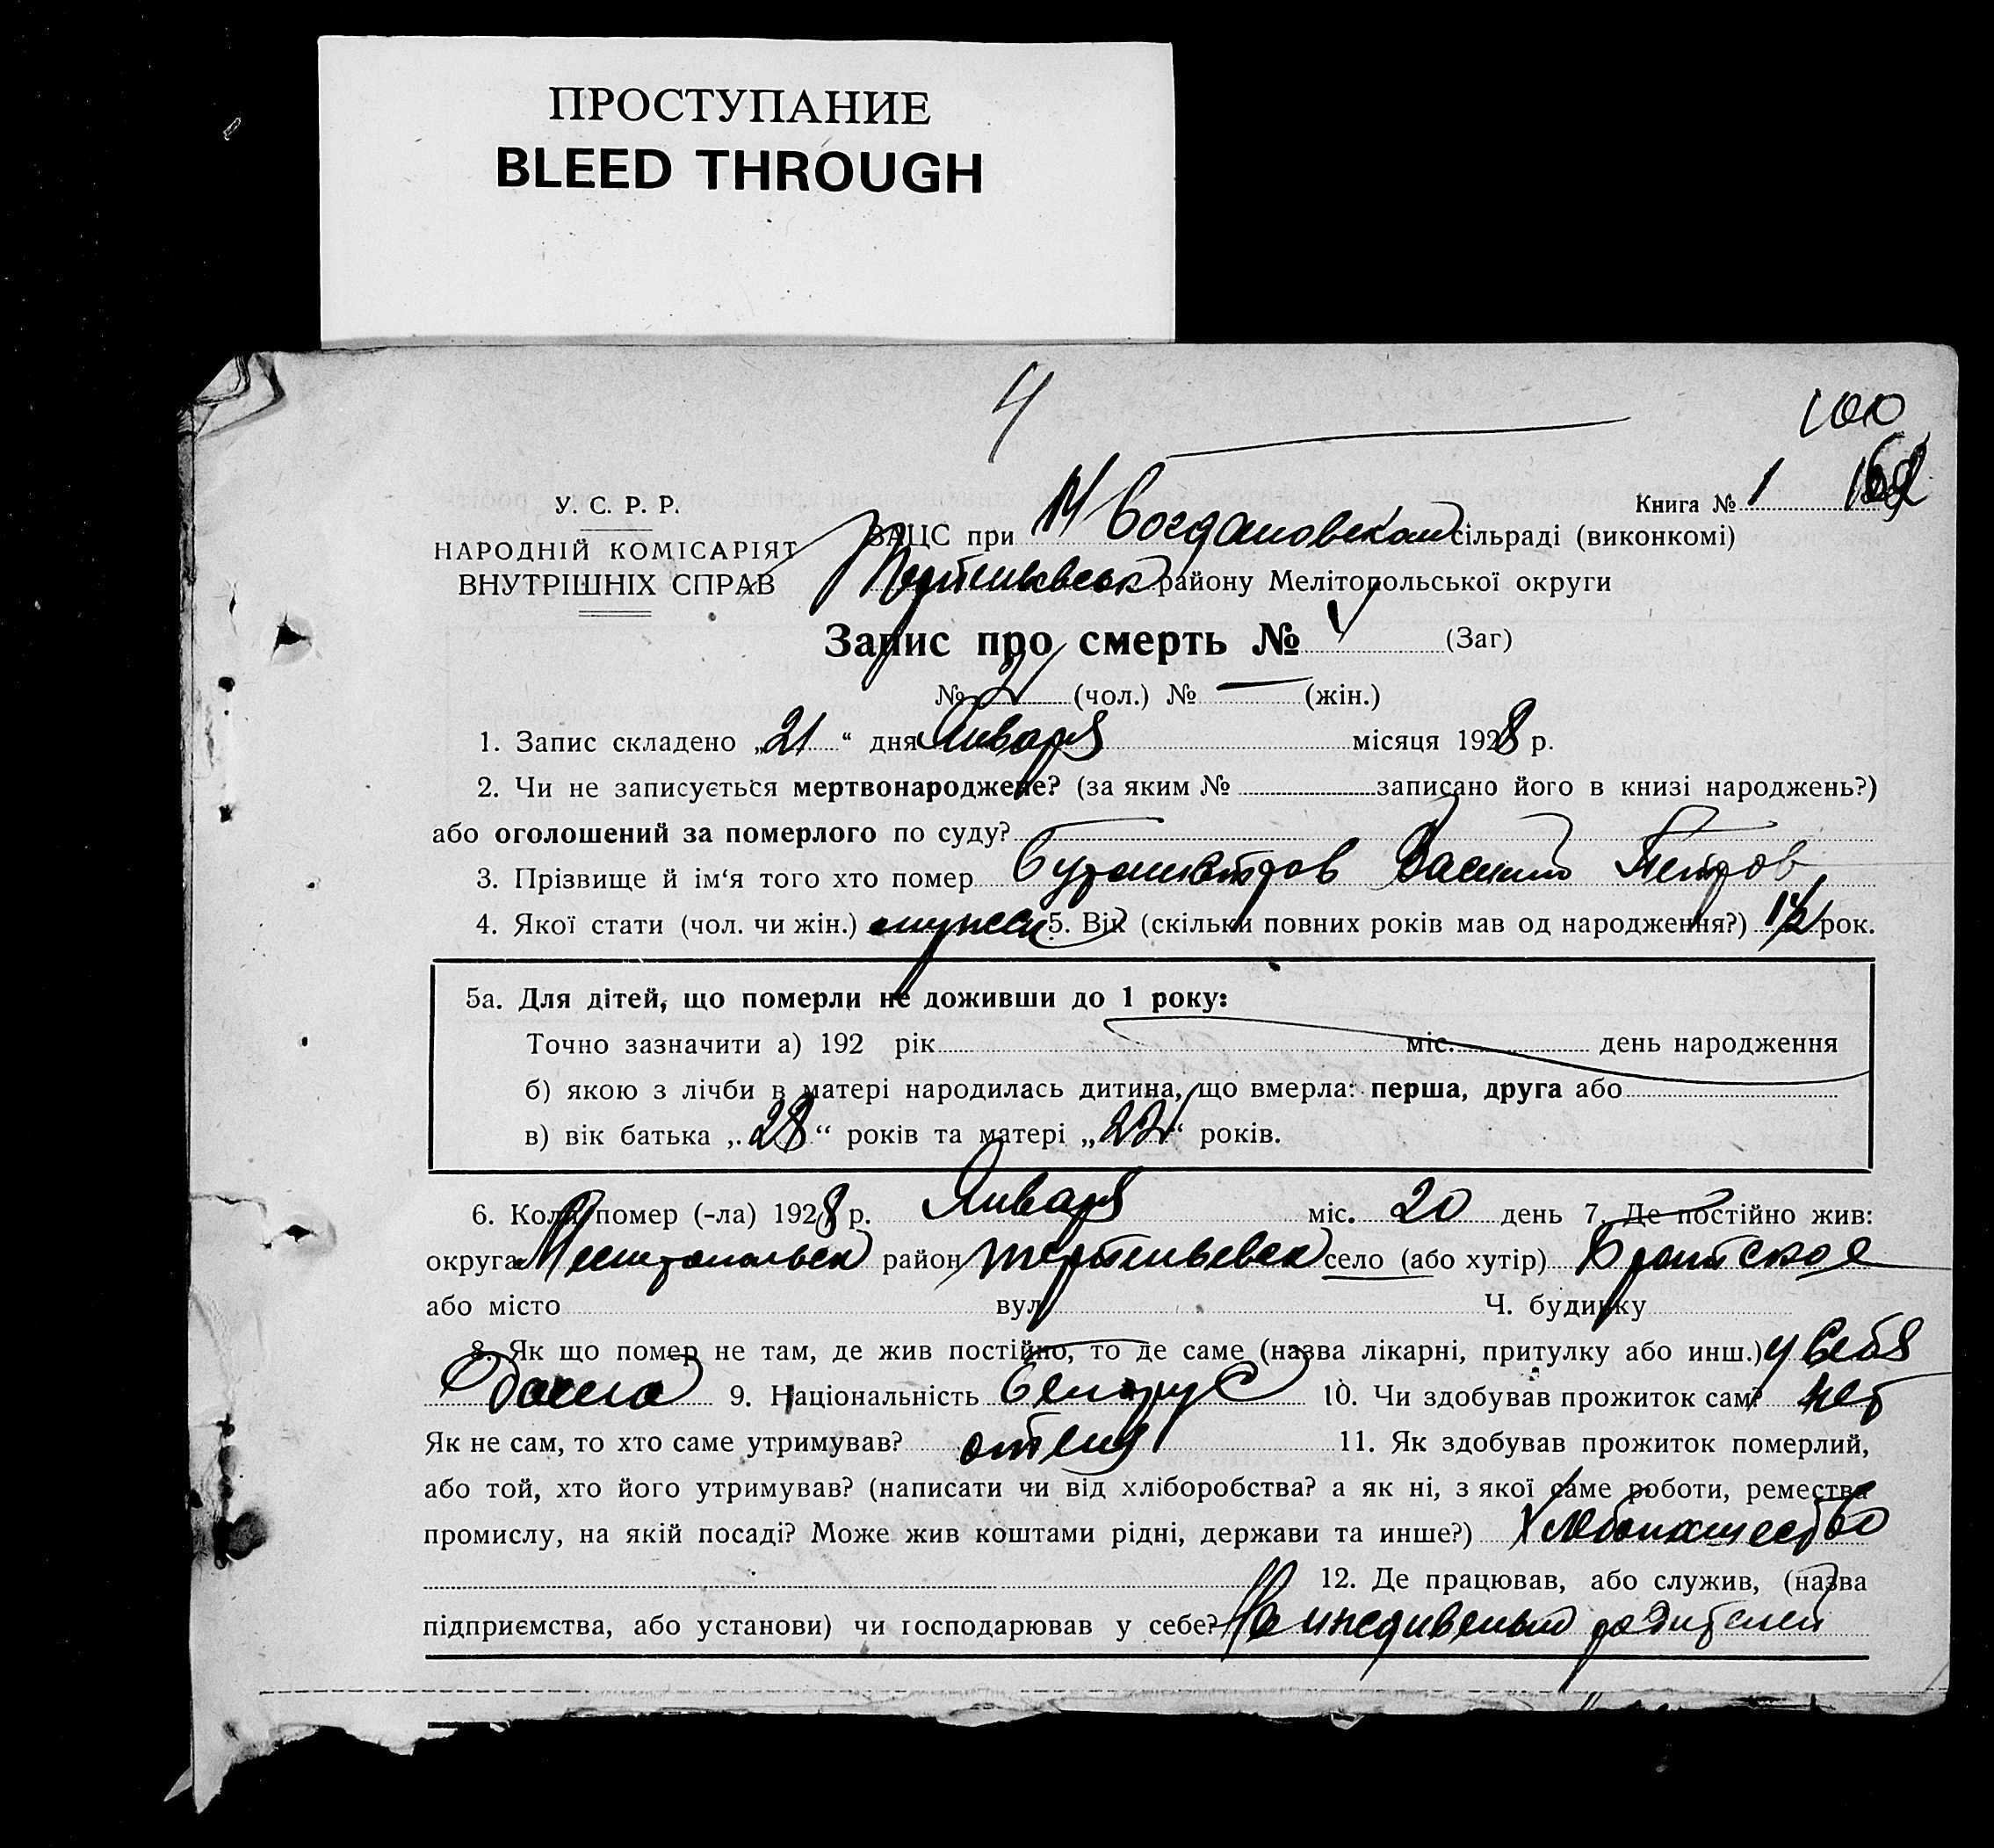 ПРОСТУПАНИЕ
BLEED THROUGH
4
100
У. С. Р. Р.
НАРОДНІЙ КОМІСАРІЯТ
ВНУТРІШНІХ СПРАВ
Книга № 1
ЗАЦС при М Богдановском сільраді (виконкомі)
району Мелітопольської округи
Запис про смерть № 4 (Заг)
№ (чол.) № — (жін.)
1. Запис складено „21“ дня Января місяця 1928 р.
2. Чи не записується мертвонароджене? (за яким № записано його в книзі народжень?)
або оголошений за померлого по суду?
3. Прізвище й ім‘я того хто помер Василий Петров
4. Якої стати (чол. чи жін.) мужск 5. Вік (скільки повних років мав од народження?) 1½ рок.
5а. Для дітей, що померли не доживши до 1 року:
Точно зазначити а) 192 рік міс. день народження
б) якою з лічби в матері народилась дитина, що вмерла: перша, друга або
в) вік батька „28“ років та матері „22“ років.
6. Коли помер (-ла) 1928 р. Января міс. 20 день 7. Де постійно жив:
округа Мелитопольск район село (або хутір) Братское
або місто вул. Ч. будинку
8. Як що помер не там, де жив постійно, то де саме (назва лікарні, притулку або инш.) у себя
дома 9. Національність белорус 10. Чи здобував прожиток сам? нет
Як не сам, то хто саме утримував? отец 11. Як здобував прожиток померлий,
або той, хто його утримував? (написати чи від хліборобства? а як ні, з якої саме роботи, ремества
промислу, на якій посаді? Може жив коштами рідні, держави та инше?) Хлебопашество
12. Де працював, або служив, (назва
підприємства, або установи) чи господарював у себе? На иждивении родителей